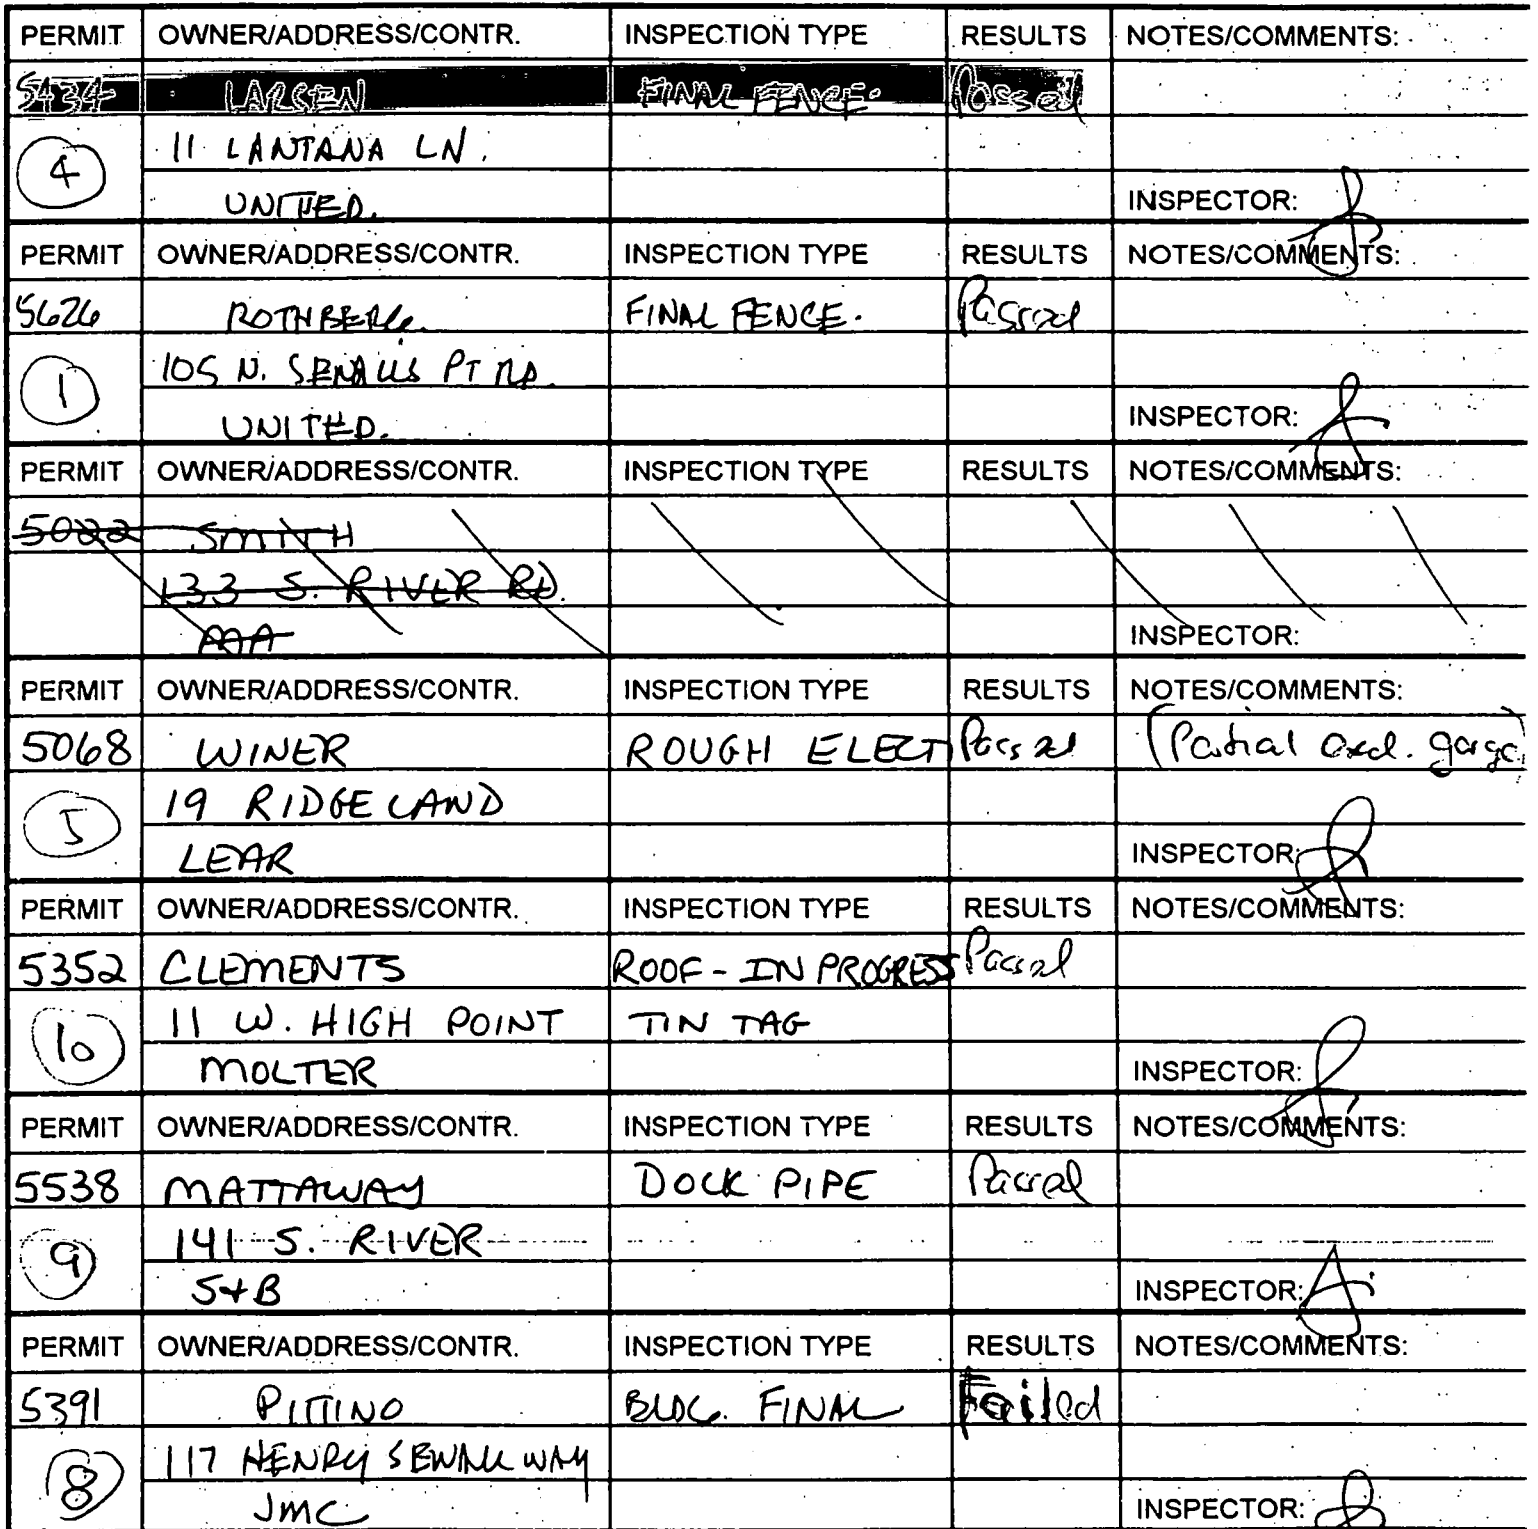 PERMIT OWNER/ADDRESS/CONTR. INSPECTION TYPE RESULTS NOTES/COMMENTS:
5434 LARSEN FINAL FENCE. Passed
4 11 LANTANA LN.
UNITED. INSPECTOR:
PERMIT OWNER/ADDRESS/CONTR. INSPECTION TYPE RESULTS NOTES/COMMENTS:
5626 ROTHBERG. FINAL FENCE. Passed
1 105 N. SEWALLS PT RD.
UNITED. INSPECTOR:
PERMIT OWNER/ADDRESS/CONTR. INSPECTION TYPE RESULTS NOTES/COMMENTS:
5022 SMITH
133 S. RIVER RD.
AAA INSPECTOR:
PERMIT OWNER/ADDRESS/CONTR. INSPECTION TYPE RESULTS NOTES/COMMENTS:
5068 WINER ROUGH ELECT Passed (Partial excl. garage)
5 19 RIDGELAND
LEAR INSPECTOR:
PERMIT OWNER/ADDRESS/CONTR. INSPECTION TYPE RESULTS NOTES/COMMENTS:
5352 CLEMENTS ROOF - IN PROGRESS Passed
10 11 W. HIGH POINT TIN TAG
MOLTER INSPECTOR:
PERMIT OWNER/ADDRESS/CONTR. INSPECTION TYPE RESULTS NOTES/COMMENTS:
5538 MATTAWAY DOCK PIPE Passed
9 141 S. RIVER
S+B INSPECTOR:
PERMIT OWNER/ADDRESS/CONTR. INSPECTION TYPE RESULTS NOTES/COMMENTS:
5391 PITTINO BLDG. FINAL Failed
8 117 HENRY SEWALL WAY
JMC INSPECTOR: